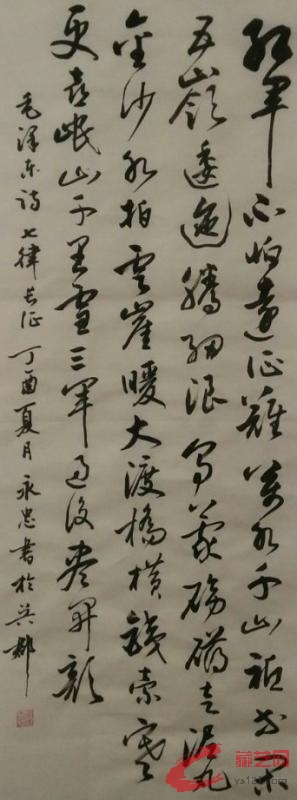 红军不怕远征难万水千山只等闲
五岭逶迤腾细浪乌蒙磅礴走泥丸
金沙水拍云崖暖大渡桥横铁索寒
更喜岷山千里雪三军过后尽开颜
毛泽东诗七律长征丁酉夏月永忠书於吴郡
藏艺网